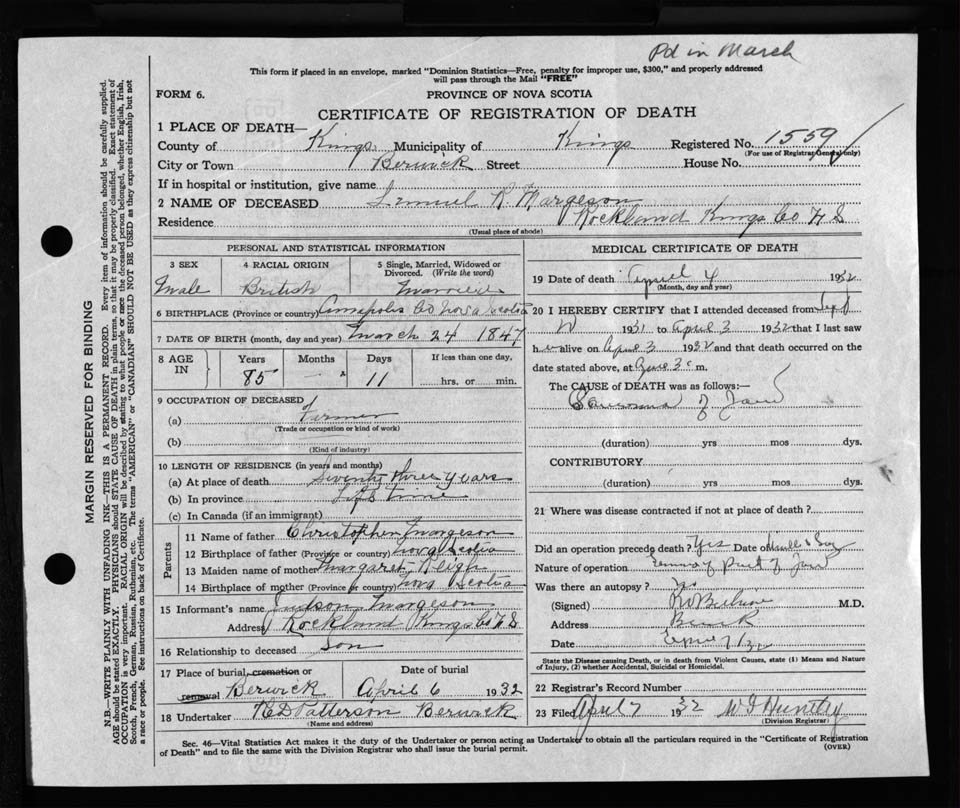 Pd in March
This form if placed in an envelope, marked "Dominion Statistics—Free, penalty for improper use, $300," and properly addressed
will pass through the Mail "FREE"
FORM 6.
PROVINCE OF NOVA SCOTIA
CERTIFICATE OF REGISTRATION OF DEATH
1 PLACE OF DEATH—
County of Kings Municipality of Kings Registered No. 1559
(For use of Registrar General only)
City or Town Berwick Street House No.
If in hospital or institution, give name
2 NAME OF DECEASED Lemuel R Margeson
Residence Rockland Kings Co N S
(Usual place of abode)
PERSONAL AND STATISTICAL INFORMATION
3 SEX
Male
4 RACIAL ORIGIN
British
5 Single, Married, Widowed or
Divorced. (Write the word)
Married
6 BIRTHPLACE (Province or country) Annapolis Co Nova Scotia
7 DATE OF BIRTH (month, day and year) March 24 1847
8 AGE
IN
Years
85
Months
Days
11
If less than one day,
hrs. or min.
9 OCCUPATION OF DECEASED
(a) Farmer
(Trade or occupation or kind of work)
(b)
(Kind of industry)
10 LENGTH OF RESIDENCE (in years and months)
(a) At place of death Seventy three years
(b) In province Life time
(c) In Canada (if an immigrant)
Parents
11 Name of father Christopher Margeson
12 Birthplace of father (Province or country) Nova Scotia
13 Maiden name of mother Margaret
14 Birthplace of mother (Province or country) Nova Scotia
15 Informant's name Judson Margeson
Address Rockland Kings Co N S
16 Relationship to deceased Son
17 Place of burial, cremation or
removal Berwick
Date of burial
April 6 1932
18 Undertaker R D Patterson Berwick
(Name and address)
MEDICAL CERTIFICATE OF DEATH
19 Date of death April 4 1932
(Month, day and year)
20 I HEREBY CERTIFY that I attended deceased from Sept
1931 to April 3 1932 that I last saw
h alive on April 3 1932 and that death occurred on
date stated above, at m.
The CAUSE of DEATH was as follows:—
Sarcoma of Jaw
(duration) yrs mos dys.
CONTRIBUTORY
(duration) yrs mos dys.
21 Where was disease contracted if not at place of death?
Did an operation precede death? Yes Date of
Nature of operation of Jaw
Was there an autopsy?
(Signed) M.D.
Address
Date
State the Disease causing Death, or in death from Violent Causes, state (1) Means and Nature
of Injury, (2) whether Accidental, Suicidal or Homicidal.
22 Registrar's Record Number
23 Filed April 7 1932 Huntley
(Division Registrar)
Sec. 46—Vital Statistics Act makes it the duty of the Undertaker or person acting as Undertaker to obtain all the particulars required in the "Certificate of Registration
of Death" and to file the same with the Division Registrar who shall issue the burial permit.
(OVER)
MARGIN RESERVED FOR BINDING
N.B.—WRITE PLAINLY WITH UNFADING INK—THIS IS A PERMANENT RECORD. Every item of information should be carefully supplied.
AGE should be stated EXACTLY. PHYSICIANS should STATE CAUSE OF DEATH in plain terms, so that it may be properly classified. Exact statement of
OCCUPATION is very important. RACIAL ORIGIN will be described by stating to what people or race the deceased person belonged, whether English, Irish,
Scotch, French, German, Russian, Ruthenian, etc. The terms "AMERICAN" or "CANADIAN" SHOULD NOT BE USED as they express citizenship but not
a race or people. See instructions on back of Certificate.